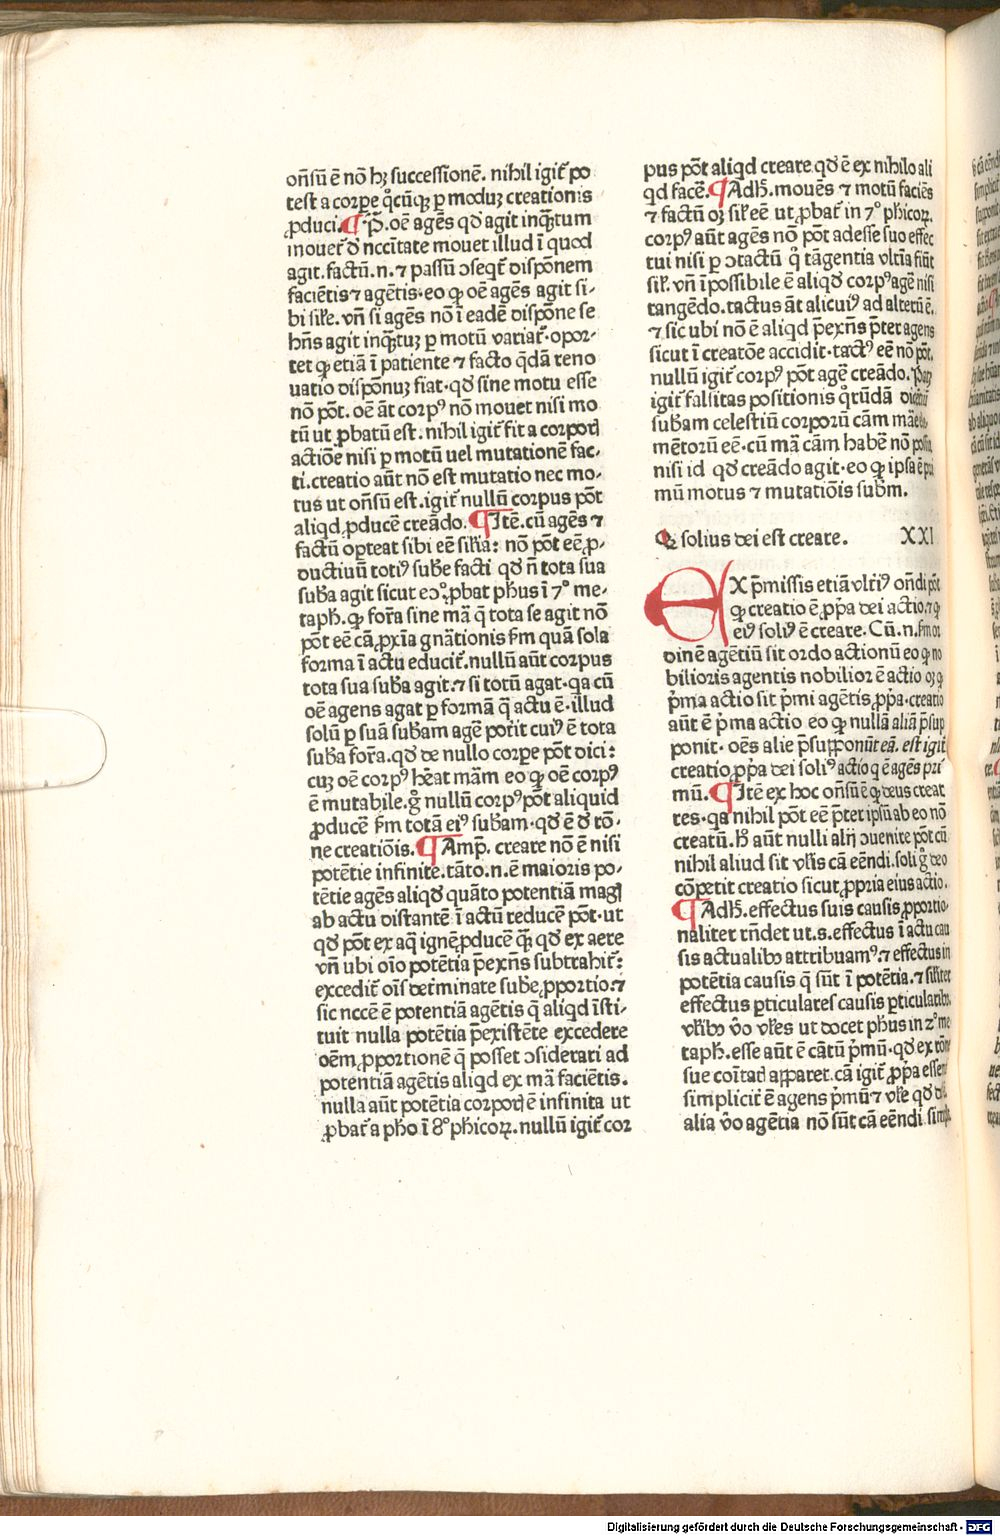 onſū ē nō hꝫ ſucceſſionē. nihil igit̄ po
teſt a corꝑe q̊cūqꝫ ꝑ moduꝫ creationis
ꝓduci. ¶ P̄. oē agēs qd̄ agit inq̄ꝫtum
mouet᷑ d̄ nccītate mouet illud ī quod
agit. factū .n. ⁊ paſſū ↄſeqt᷑ diſpōnem
faciētis ⁊ agētis. eo ꝙ oē agēs agit ſi-
bi ſil̄e. vn̄ ſi agēs nō ī eadē diſpōne ſe
hn̄s agit inq̄ꝫtuꝫ ꝑ motū variat᷑. opor-
tet ꝙ etiā ī patiente ⁊ facto q̄dā reno
uatio diſpōnuꝫ fiat. qd̄ ſine motu eſſe
nō pōt. oē āt corpꝰ nō mouet niſi mo
tū ut ꝓbatū eſt. nihil igit᷑ fit a corporꝭ
actiōe niſi ꝑ motū uel mutationē fac-
ti. creatio aūt nō eſt mutatio nec mo-
tus ut onſū eſt. igit᷑ nullū corpus pōt
aliqd ꝓducē creādo. ¶ Itē. cū agēs ⁊
factū oꝑteat ſibi eē ſil̄ia: nō pōt eē ꝓ-
ductiuū totiꝰ ſube facti qd̄ n̄ tota ſua
ſuba agit ſicut eↄ̊ ꝓbat ph̄us ī 7° me-
taph. ꝙ forā ſine mā q̄ tota ſe agit nō
pōt eē cā ꝓxīa gnātionis ẜm quā ſola
forma ī actu educit᷑. nullū aūt corpus
tota ſua ſuba agit. ⁊ ſi totū agat. qa cū
oē agens agat ꝑ formā q̄ actu ē. illud
ſolū ꝑ ſuā ſubam agē poīit cuiꝰ ē tota
ſuba forā. qd̄ de nullo corꝑe pōt dici:
cuꝫ oē corpꝰ heat mām eo ꝙ oē corpꝰ
ē mutabile. g̊ nullū corpꝰ pōt aliquid
ꝓducē ẜm totā eiꝰ ſubam. qd̄ ē d̄ rō-
ne creatiōis. ¶ Ampl̄. creare nō ē niſi
potētie infinite. tāto .n. ē maioris po-
tētie agēs aliqd̄ quāto potentiā magꝭ
ab actu diſtantē ī actū reducē pōt. ut
qd̄ pōt ex aq̄ ignē ꝓducē q̄ꝫ qd̄ ex aere
vn̄ ubi oīo potētia p̄exn̄s ſubtrahit᷑:
excedit᷑ oīs det̄minate ſube ꝓportio. ⁊
ſic nccē ē potentiā agētis q̄ aliqd īſti-
tuit nulla potētia p̄exiſtēte excedere
oēm ꝓportionē q̄ poſſet ↄſiderari ad
potentiā agētis aliqd ex mā faciētis.
nulla aūt potētia corporꝭ ē infinita ut
ꝓbat᷑ a ph̄o ī 8° phicoꝝ. nullū igit᷑ cor
pus pōt aliqd creare qd̄ ē ex nihilo ali
qd facē. ¶ Adh. mouēs ⁊ motū faciēs
⁊ factū oꝫ ſil̄ eē ut ꝓbat᷑ in 7° phicoꝝ.
corpꝰ aūt agēs nō pōt adeſſe ſuo effec
tui niſi ꝑ ↄtactū q̊ tāgentia vltīa fiūt
ſil̄. vn̄ īpoſſibile ē aliqd̄ corpꝰ agē niſi
tangēdo. tactus āt alicuiꝰ ad alterū ē.
⁊ ſic ubi nō ē aliqd p̄exn̄s p̄ter agens
ſicut ī creatōe accidit. tactꝰ eē nō pōt.
nullū igit᷑ corpꝰ pōt agē creādo. Patꝫ
igit᷑ falſitas poſitionis q̊rūdā dicētiū
ſubam celeſtiū corporū cām māe
mētorū eē. cū mā cām habē nō
niſi id qd̄ creādo agit. eo ꝙ ipſa ē pri
mū motus ⁊ mutatiōis ſubm̄.
Q ſolius dei eſt creare. XXI
EX p̄miſſis etiā vltīꝰ on̄di pōt
ꝙ creatio ē ꝓpa dei actio. ⁊ ꝙ
eiꝰ ſoliꝰ ē creare. Cū .n. ẜm or
dinē agētiū ſit ordo actionū eo ꝙ no
bilioris agentis nobilior ē actio oꝫ ꝙ
p̄ma actio ſit p̄mi agētis ꝓpa. creatio
aūt ē p̄ma actio eo ꝙ nullā aliā p̄ſup
ponit. oēs alie p̄ſupponūt eā. eſt igit᷑
creatio ꝓpa dei ſoliꝰ actio q̄ ē agēs pri
mū. ¶ Itē ex hoc onſū ē ꝙ deus creat
res. qa nihil pōt eē p̄ter ipſū ab eo nō
creatū. h̄ aūt nulli alīi ↄuenire pōt cū
nihil aliud ſit vlīs cā eēndi. ſoli g̊ deo
cōpetit creatio ſicut ꝓpria eius actio.
¶ Adh. effectus ſuis cauſis ꝓportio
naliter rn̄det ut .s. effectus ī actu cau
ſis actualibꝰ attribuamꝰ. ⁊ effectus in
potētia cauſis q̄ ſūt ī potētia. ⁊ ſiliter
effectus ꝑticulares cauſis ꝑticularibꝰ.
vlībꝰ v̊o vl̄es ut docet ph̄us in 2° me
taph. eſſe aūt ē cātū p̄mū. qd̄ ex rōne
ſue coītatꝭ apparet. cā igit᷑ ꝓpa eſſendi
ſimplicit᷑ ē agens p̄mū ⁊ vl̄e qd̄
alia v̊o agētia nō ſūt cā eēndi ſimpl
Digitalisierung gefördert durch die Deutsche Forschungsgemeinschaft - DFG